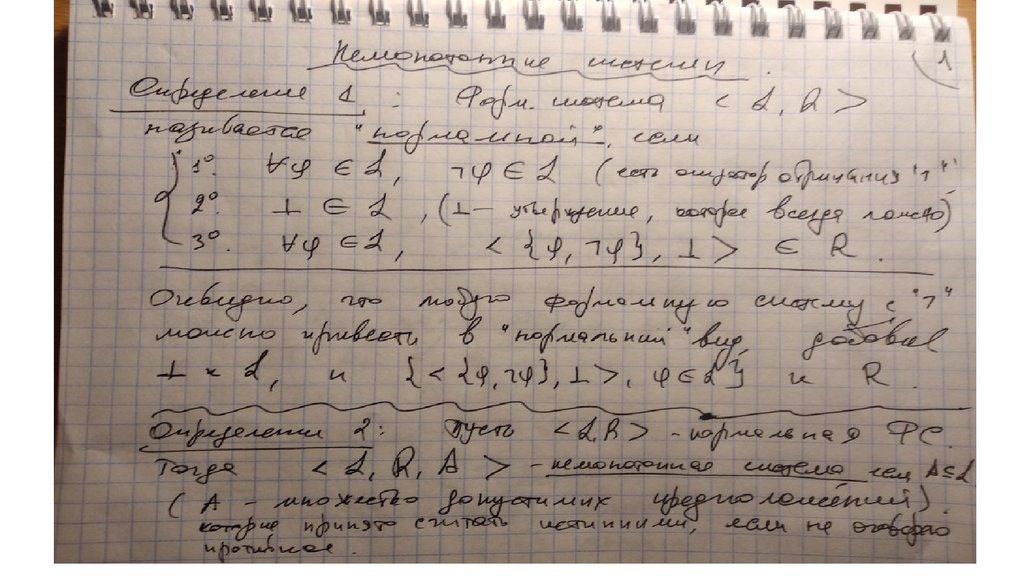 Немонотонные системы.
1
Определение 1: Форм. система < L, R >
называется "нормальной", если
1°. ∀φ ∈ L, ¬φ ∈ L (есть оператор отрицания "¬")
2°. ⊥ ∈ L, (⊥ — утверждение, которое всегда ложно)
3°. ∀φ ∈ L, < {φ, ¬φ}, ⊥ > ∈ R.
Очевидно, что любую формальную систему с "¬"
можно привести в "нормальный" вид, добавив
⊥ к L, и {< {φ, ¬φ}, ⊥ >, φ ∈ L} к R.
Определение 2: Пусть <L, R> - нормальная ФС.
Тогда < L, R, A > - немонотонная система если A ⊆ L
(A - множество допустимых предположений),
которые принято считать истинными, если не оговорено
противное.